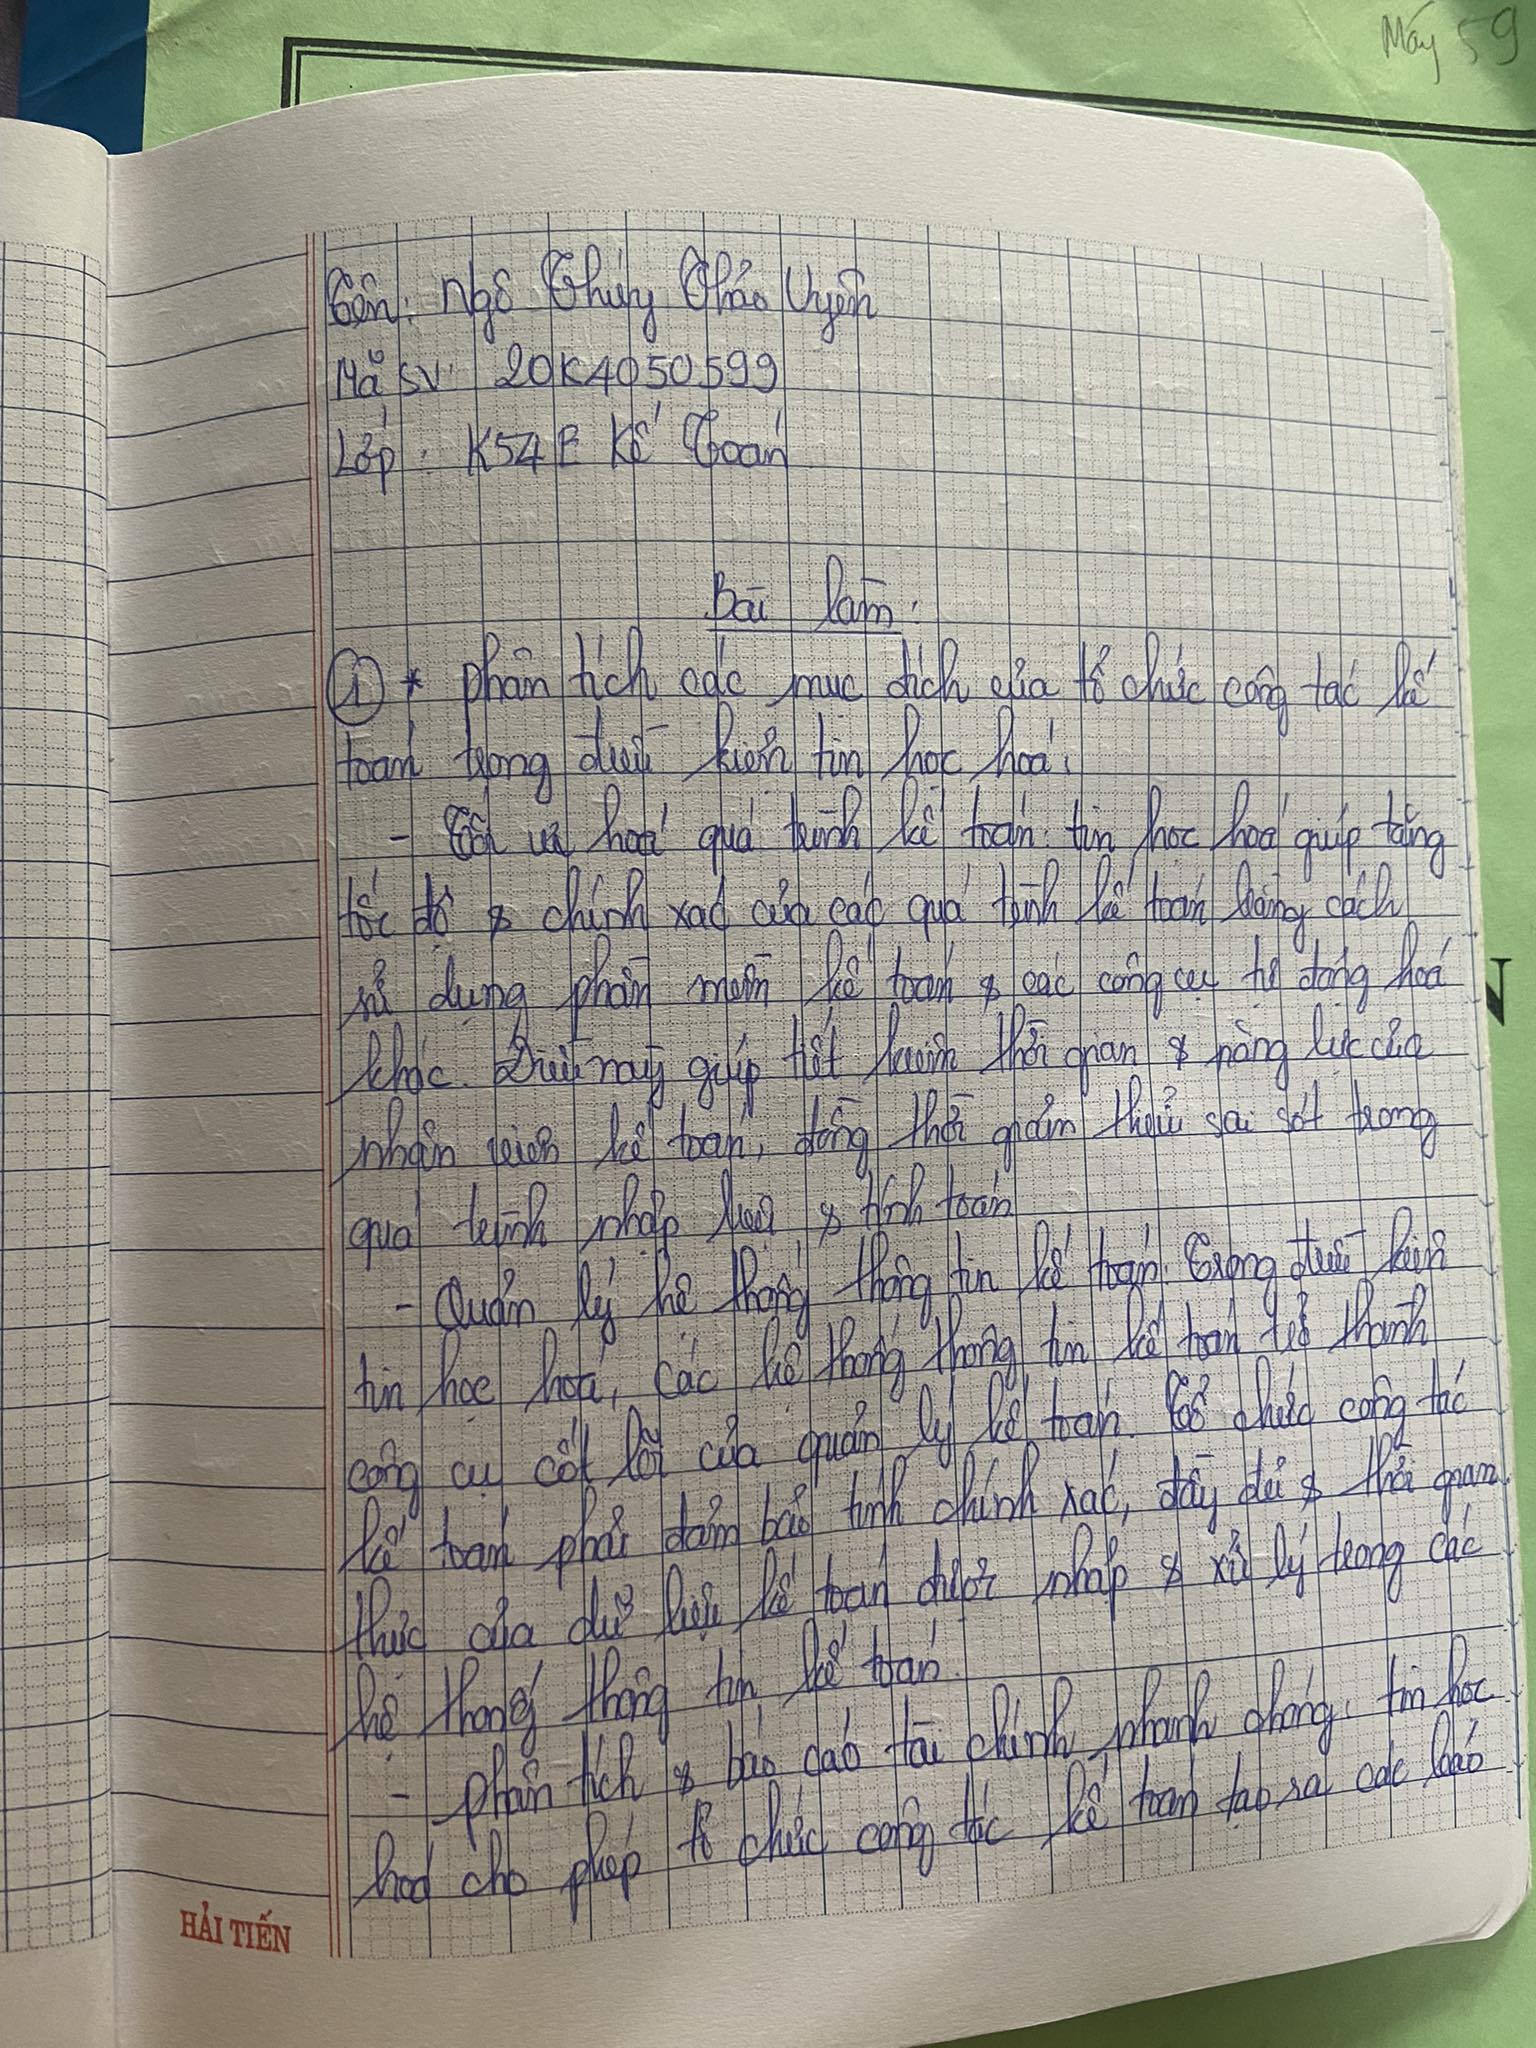 Máy 59
Tên: Ngô Thúy Thảo Uyên
Mã SV: 20K4050599
Lớp: K54E Kế Toán
Bài làm:
① * phân tích các mục đích của tổ chức công tác kế
toán trong điều kiện tin học hoá.
- Tối ưu hoá quá trình kế toán: tin học hoá giúp tăng
tốc độ & chính xác của các quá trình kế toán bằng cách
sử dụng phần mềm kế toán & các công cụ tự động hoá
khác. Điều này giúp tiết kiệm thời gian & năng lực của
nhân viên kế toán, đồng thời giảm thiểu sai sót trong
quá trình nhập liệu & tính toán
- Quản lý hệ thống thông tin kế toán: Trong điều kiện
tin học hoá, các hệ thống thông tin kế toán trở thành
công cụ cốt lõi của quản lý kế toán. Tổ chức công tác
kế toán phải đảm bảo tính chính xác, đầy đủ & thời gian
thực của dữ liệu kế toán được nhập & xử lý trong các
hệ thống thông tin kế toán.
- phân tích & báo cáo tài chính nhanh chóng: tin học
hoá cho phép tổ chức công tác kế toán tạo ra các báo
HẢI TIẾN
N